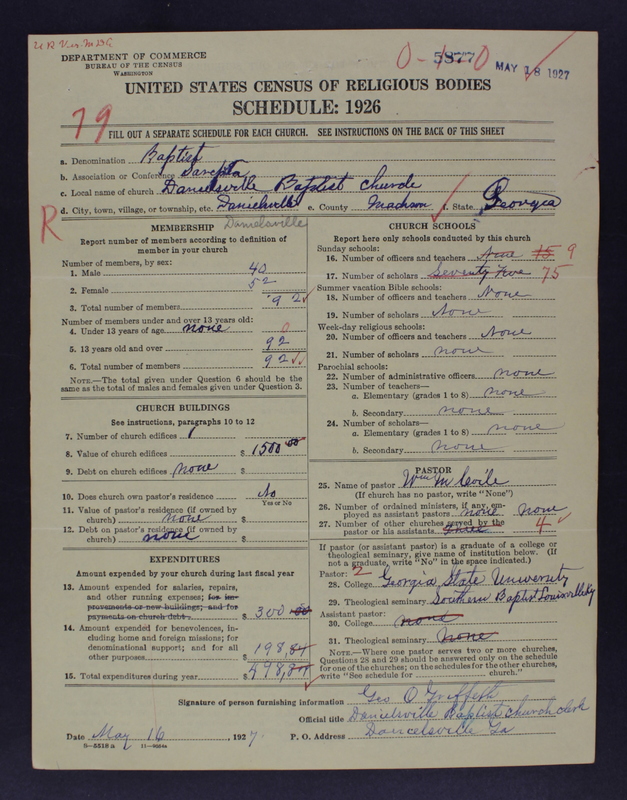 DEPARTMENT OF COMMERCE
BUREAU OF THE CENSUS
WASHINGTON
0-1-0
5877
MAY 18 1927
UNITED STATES CENSUS OF RELIGIOUS BODIES
SCHEDULE: 1926
79
FILL OUT A SEPARATE SCHEDULE FOR EACH CHURCH. SEE INSTRUCTIONS ON THE BACK OF THIS SHEET
a. Denomination Baptist
b. Association or Conference Sarepta
c. Local name of church Danielsville Baptist Church
d. City, town, village, or township, etc. Danielsville e. County Madison f. State Georgia
R
Danielsville
MEMBERSHIP
Report number of members according to definition of
member in your church
Number of members, by sex:
1. Male 40
2. Female 52
3. Total number of members 92
Number of members under and over 13 years old:
4. Under 13 years of age none 0
5. 13 years old and over 92
6. Total number of members 92
NOTE.—The total given under Question 6 should be the
same as the total of males and females given under Question 3.
CHURCH BUILDINGS
See instructions, paragraphs 10 to 12
7. Number of church edifices 1
8. Value of church edifices $ 1500 00
9. Debt on church edifices none $
10. Does church own pastor's residence No
Yes or No
11. Value of pastor's residence (if owned by
church) none $
12. Debt on pastor's residence (if owned by
church) none $
EXPENDITURES
Amount expended by your church during last fiscal year
13. Amount expended for salaries, repairs,
and other running expenses; for im-
provements or new buildings; and for
payments on church debt $ 300 00
14. Amount expended for benevolences, in-
cluding home and foreign missions; for
denominational support; and for all
other purposes 198,84
15. Total expenditures during year $ 498,84
CHURCH SCHOOLS
Report here only schools conducted by this church
Sunday schools:
16. Number of officers and teachers Nine 15 9
17. Number of scholars Seventy Five 75
Summer vacation Bible schools:
18. Number of officers and teachers None
19. Number of scholars None
Week-day religious schools:
20. Number of officers and teachers None
21. Number of scholars none
Parochial schools:
22. Number of administrative officers none
23. Number of teachers—
a. Elementary (grades 1 to 8) none
b. Secondary none
24. Number of scholars—
a. Elementary (grades 1 to 8) none
b. Secondary none
PASTOR
25. Name of pastor Wm M
(If church has no pastor, write "None")
26. Number of ordained ministers, if any, em-
ployed as assistant pastors none none
27. Number of other churches served by the
pastor or his assistants three 4
If pastor (or assistant pastor) is a graduate of a college or
theological seminary, give name of institution below. (If
not a graduate, write "No" in the space indicated.)
Pastor: 2
28. College Georgia State University
29. Theological seminary Southern Baptist Louisville Ky
Assistant pastor:
30. College none
31. Theological seminary none
NOTE.—Where one pastor serves two or more churches,
Questions 28 and 29 should be answered only on the schedule
for one of the churches; on the schedules for the other churches,
write "See schedule for church."
Signature of person furnishing information Geo O Griffeth
Official title Danielsville Baptist church clerk
Date May 16, 1927. P. O. Address Danielsville Ga
S-5518a 11-9664a